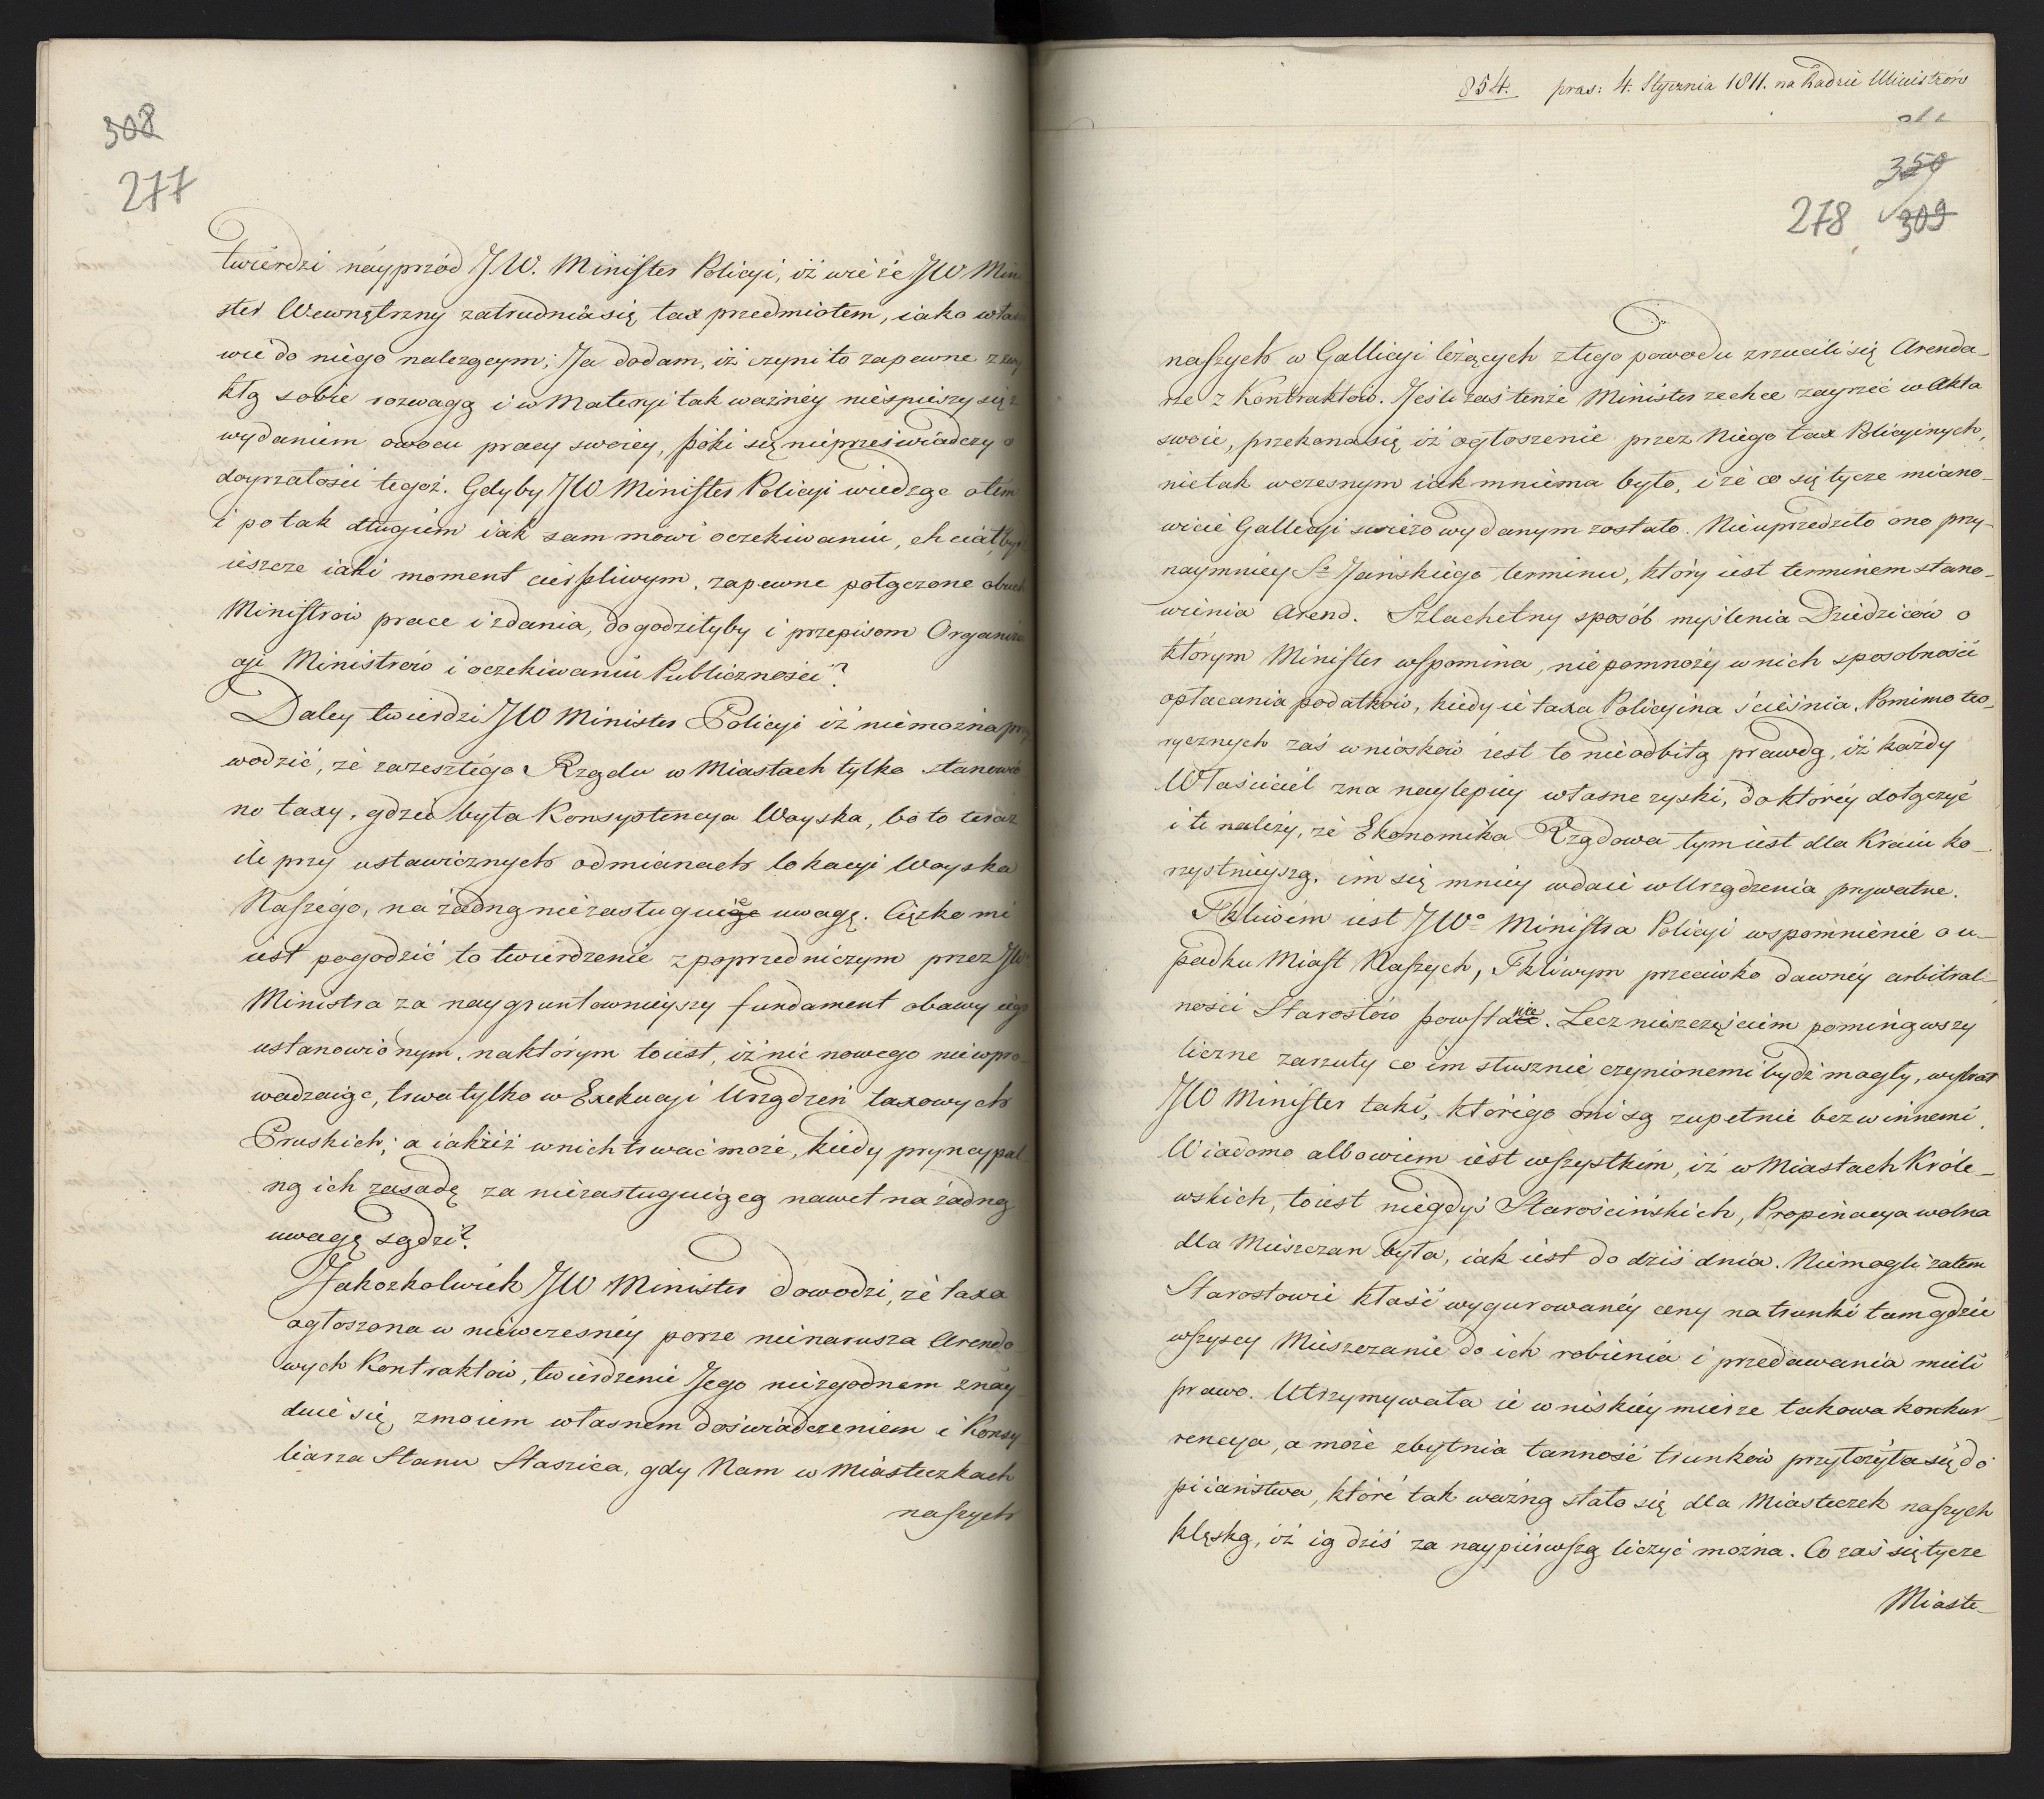 308
277
twierdzi nayprzód JW. Minister Policyi, iż wie że JW Mini
ster Wewnętrzny zatrudnia się tax przedmiotem, iako właści
wie do niego należącym; Ja dodam, iż czyni to zapewne z zwy
kłą sobie rozwagą i w Materyi tak ważnéy nieśpieszy się z
wydaniem owocu pracy swoiey, póki się nieprzeświadczy o
doyrzałości tegoż. Gdyby JW Minister Policyi wiedząc otem
i po tak długiem iak sam mówi oczekiwaniu, chciał być
ieszcze iaki moment cierpliwym, zapewne połączone obuch
Ministrów prace i zdania, dogodziłyby i przepisom Organiza
cyi Ministrów i oczekiwaniu Publiczności?
Daley twierdzi JW Minister Policyi iż niemożna przy
wodzić, że zareszłego Rządu w Miastach tylko stanowio
no taxy, gdzie była Konsystencya Woyska, bo to teraz
ile przy ustawicznych odmianach lokacyi Woyska
Naszego, na żadną niezasługuie uwagę. Ciężko mi
iest pogodzić to twierdzenie z poprzedniczym przez JW
Ministra za naygruntownieyszy fundament obawy iego
ustanowionym, na którym toiest, iż nic nowego niewpro
wadzaiąc, trwa tylko w Exekucyi Urządzeń taxowych
Pruskich; a iakżeż w nich trwać może, kiedy pryncypal
ną ich zasadę za niezasługuiącą nawet na żadną
uwagę sądzi?
Jakożkolwiek JW Minister dowodzi, że taxa
ogłoszona w niewczesnéy porze nienarusza Arendo
wych Kontraktów, twierdzenie Jego niezgodnem znay
duie się, z moiem własnem doświadczeniem i Konsy
liarza Stanu Staszica, gdy Nam w Miasteczkach
naszych
854. pras: 4. Stycznia 1811. na Radzie Ministrów
350
278 309
naszych w Gallicyi leżących z tego powodu zrzucili się Arenda-
rze z Kontraktów. Jeśli zaś tenże Minister zechce zayrzéć w Akta
swoie, przekona się iż ogłoszenie przez Niego tax Policyinych,
nietak wczesnym iak mniema było, i że co się tycze miano-
wicie Gallicyi swieżo wydanym zostało. Nieuprzedziło ono przy-
naymniey So Jańskiego terminu, który iest terminem stano-
wienia Arend. Szlachetny sposób myślenia Dziedziców o
którym Minister wspomina, niepomnoży w nich sposobności
opłacania podatków, kiedy ie taxa Policyina ścieśnia. Pomimo teo-
rycznych zaś wniosków iest to nieodbitą prawdą, iż każdy
Właściciel zna naylepiey własne zyski, do któréy dołączyć
i te należy, że Ekonomika Rządowa tym iest dla Kraiu ko-
rzystnieyszą, im się mniey wdaie w Urządzenia prywatne.
Tkliwém iest JWo Ministra Policyi wspomnienie o u-
padku Miast Naszych, Tkliwym przeciwko dawnéy arbitral-
ności Starostów powstanie. Lecz nieszczęściem pominąwszy
liczne zarzuty co im słusznie czynionemi bydź mogły, wybrał
JW Minister taki, którego oni są zupełnie bezwinnemi.
Wiadomo albowiem iest wszystkim, iż w Miastach Króle-
wskich, toiest niegdyś Starościńskich, Propinacya wolna
dla Mieszczan była, iak iest do dziś dnia. Niemogli zatem
Starostowie kłaść wygurowanéy ceny na trunki tam gdzie
wszyscy Mieszczanie do ich robienia i przedawania mieli
prawo. Utrzymywała ie w niskiéy mierze takowa konkur-
rencya, a może zbytnia tanność trunków przyłożyła się do
piiaństwa, które tak ważną stało się dla Miasteczek naszych
klęską, iż ią dziś za naypierwszą liczyć można. Co zaś się tycze
Miaste-